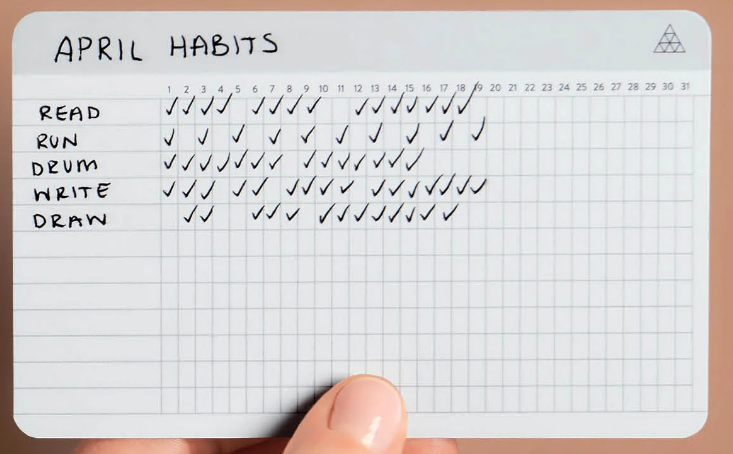 APRIL HABITS
1 2 3 4 5 6 7 8 9 10 11 12 13 14 15 16 17 18 19 20 21 22 23 24 25 26 27 28 29 30 31
READ
RUN
DRUM
WRITE
DRAW